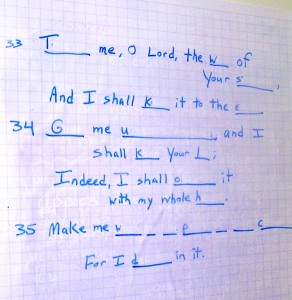 33 T____ me, O Lord, the w___ of
Your s____,
And I shall k___ it to the e___.
34 G___ me u____________, and I
shall k___ Your L;
Indeed, I shall o_____ it
with my whole h____.
35 Make me w__ _ _ p__ _ _ c____
For I d_____ in it.